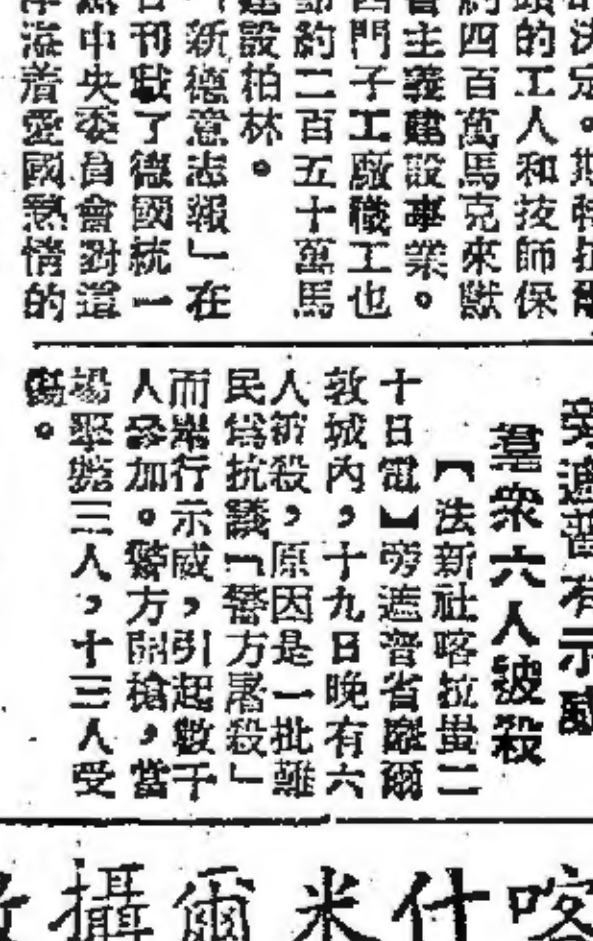 決定。斯特拉
的工人和技師保
四百萬馬克來獻
主義建設事業。
門子工廠職工也
約二百五十萬馬
建設柏林。
「新德意志報」在
刊載了德國統一
中央委員會對這
溢着愛國熱情的
旁遮普有示威
羣衆六人被殺
【法新社喀拉蚩二
十日電】旁遮普省爾
敦城內，十九日晚有六
人被殺，原因是一批難
民爲抗議「警方屠殺」
而舉行示威，引起數千
人參加。警方開槍，當
場擊斃三人，十三人受
傷。
喀什米爾攝